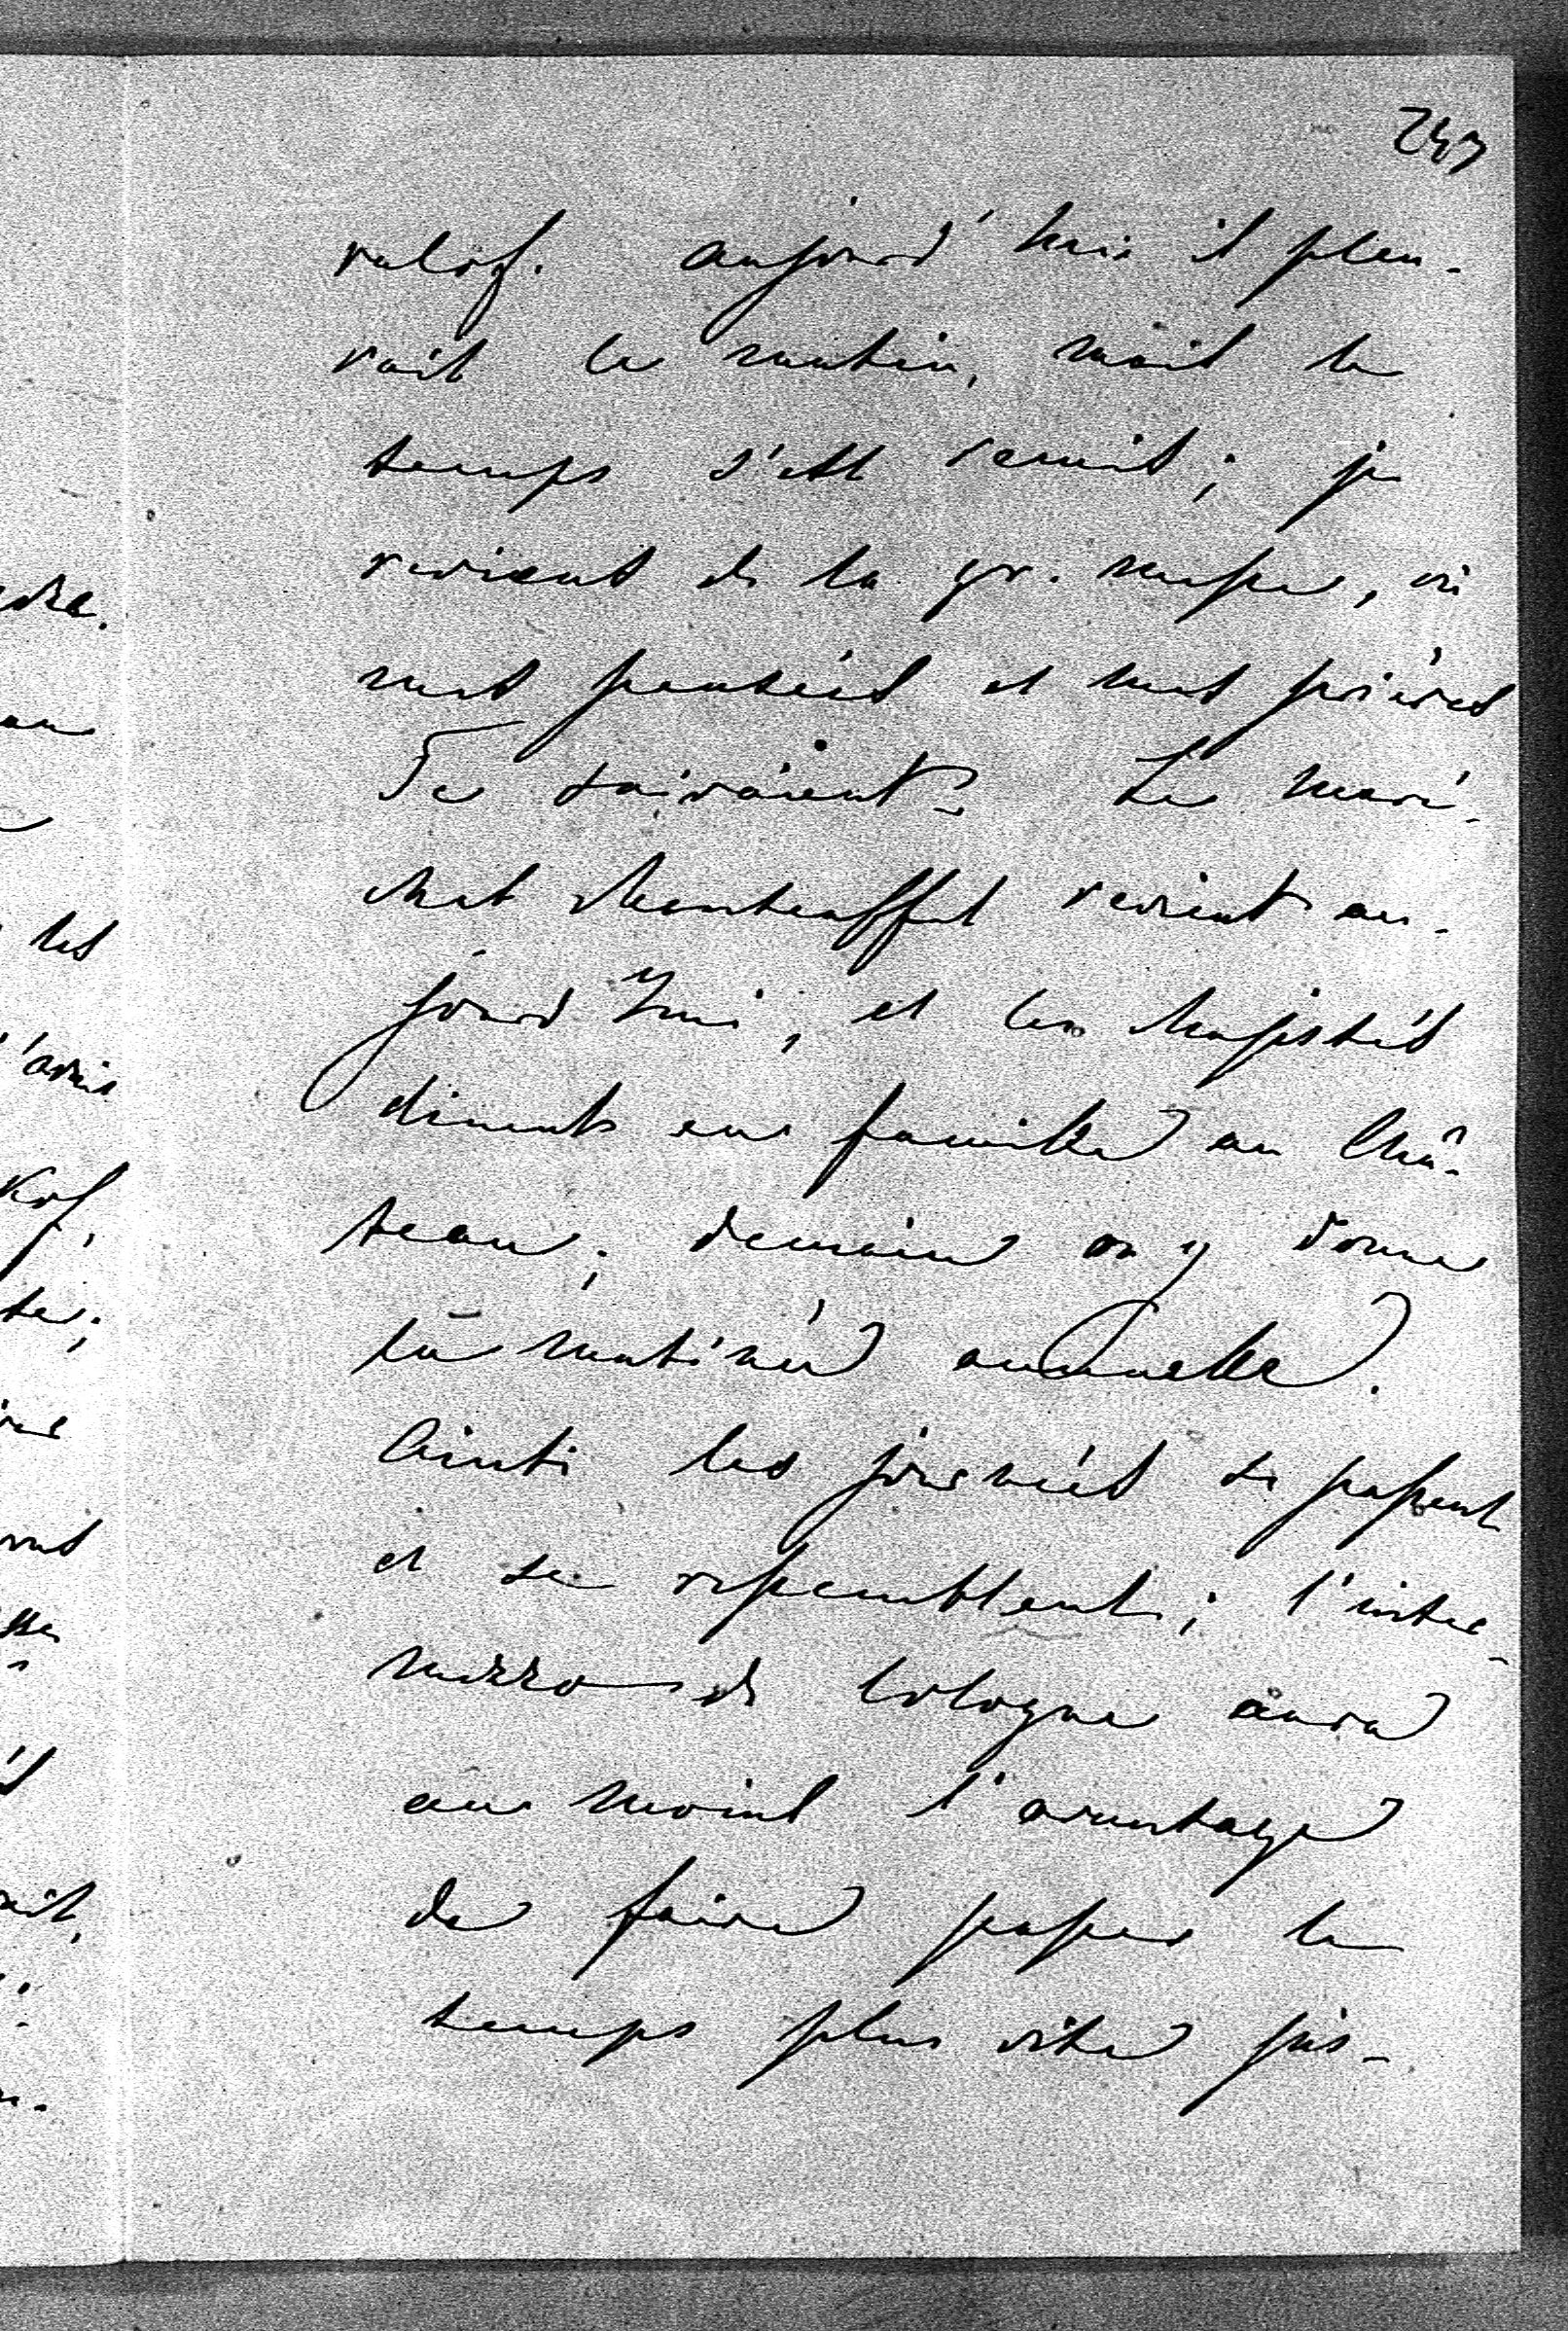 247
ralof. aujourd'hui il pleu-
vait le matin, mais le
temps s'est remis; je
reviens de la gr. messe, où
mes pensées et mes prières
Te suivaient. Le maré-
chal Manteuffel revient au-
jourd'hui, et les Majestés
dinent en famille au Châ-
teau; demain on y donne
la matinée annuelle.
Ainsi les journées se passent
et se ressemblent; l'inter-
mezzo de Cologne aura
au moins l'avantage
de faire passer le
temps plus vite jus-